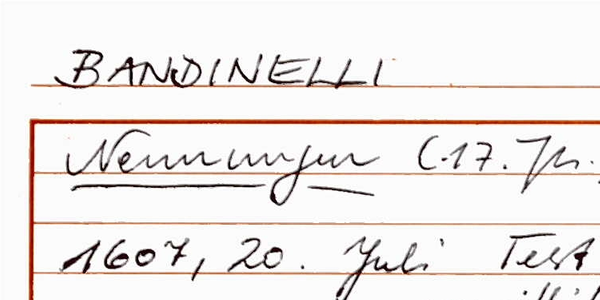 BANDINELLI
Nennungen (17. Jh.
1607, 20. Juli Test